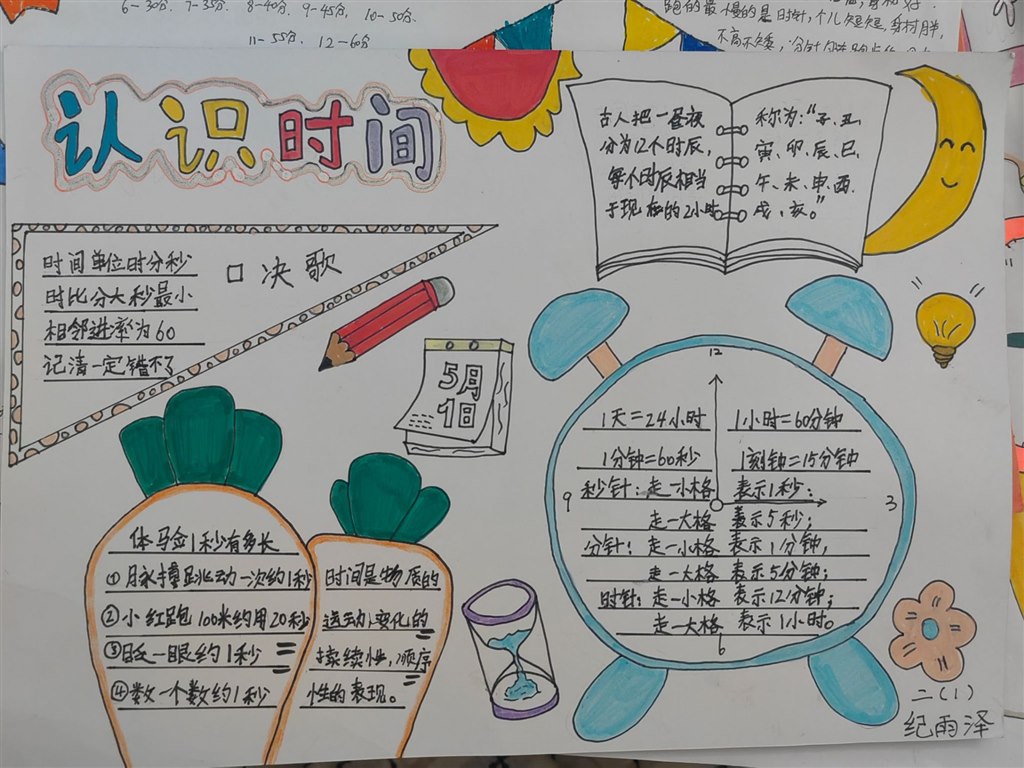 6-30分. 7-35分. 8-40分. 9-45分. 10-50分.
11-55分. 12-60分
跑的最慢的是时针,个儿短短,身材胖,
认识时间
古人把一昼夜
分为12个时辰,
每个时辰相当
于现在的2小时
称为:“子、丑、
寅、卯、辰、巳、
午、未、申、酉、
戌、亥。”
口决歌
时间单位时分秒
时比分大秒最小
相邻进率为60
记清一定错不了
5月
1日
12
9
3
6
1天=24小时
1小时=60分钟
1分钟=60秒
1刻钟=15分钟
秒针:走一小格 表示1秒;
走一大格 表示5秒;
分针:走一小格 表示1分钟,
走一大格 表示5分钟;
时针:走一小格 表示12分钟;
走一大格 表示1小时。
体马佥1秒有多长
①脉搏跳动一次约1秒
②小红跑100米约用20秒
③眨一眼约1秒
④数一个数约1秒
时间是物质的
运动、变化的
持续性,顺序
性的表现。
二(1)
纪雨泽